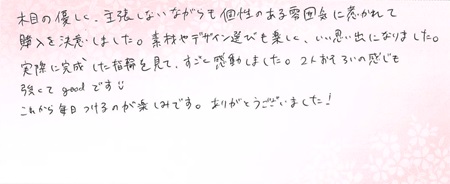 木目の優しく、主張しないながらも個性のある雰囲気に惹かれて
購入を決意しました。素材やデザイン選びも楽しく、いい思い出になりました。
実際に完成した指輪を見て、すごく感動しました。2人おそろいの感じも
強くて goodです
これから毎日つけるのが楽しみです。ありがとうございました!